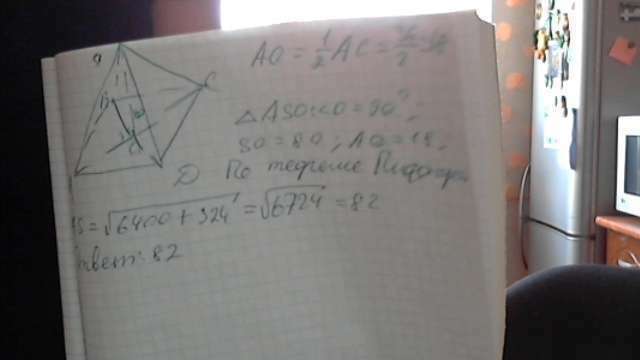 AO = 1/2 AC = 36/2 = 18
△ASO: ∠O = 90°,
SO = 80, AO = 18,
D По теореме Пифагора
AS = √6400 + 324 = √6724 = 82
Ответ: 82